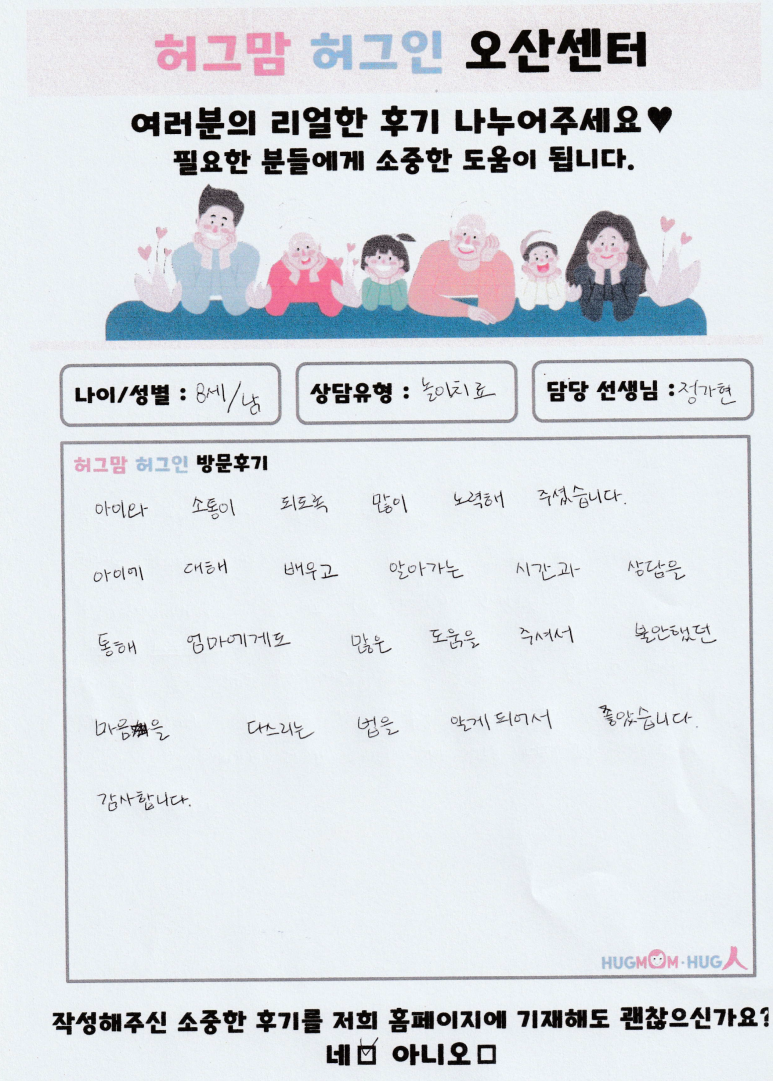 허그맘 허그인 오산센터
여러분의 리얼한 후기 나누어주세요♥
필요한 분들에게 소중한 도움이 됩니다.
나이/성별 : 8세/남
상담유형 : 놀이치료
담당 선생님 : 정가현
허그맘 허그인 방문후기
아이와 소통이 되도록 많이 노력해 주셨습니다.
아이에 대해 배우고 알아가는 시간과 상담을
통해 엄마에게도 많은 도움을 주셔서 불안했던
마음을 다스리는 법을 알게 되어서 좋았습니다.
감사합니다.
HUGMOM·HUG人
작성해주신 소중한 후기를 저희 홈페이지에 기재해도 괜찮으신가요?
네☑ 아니오□